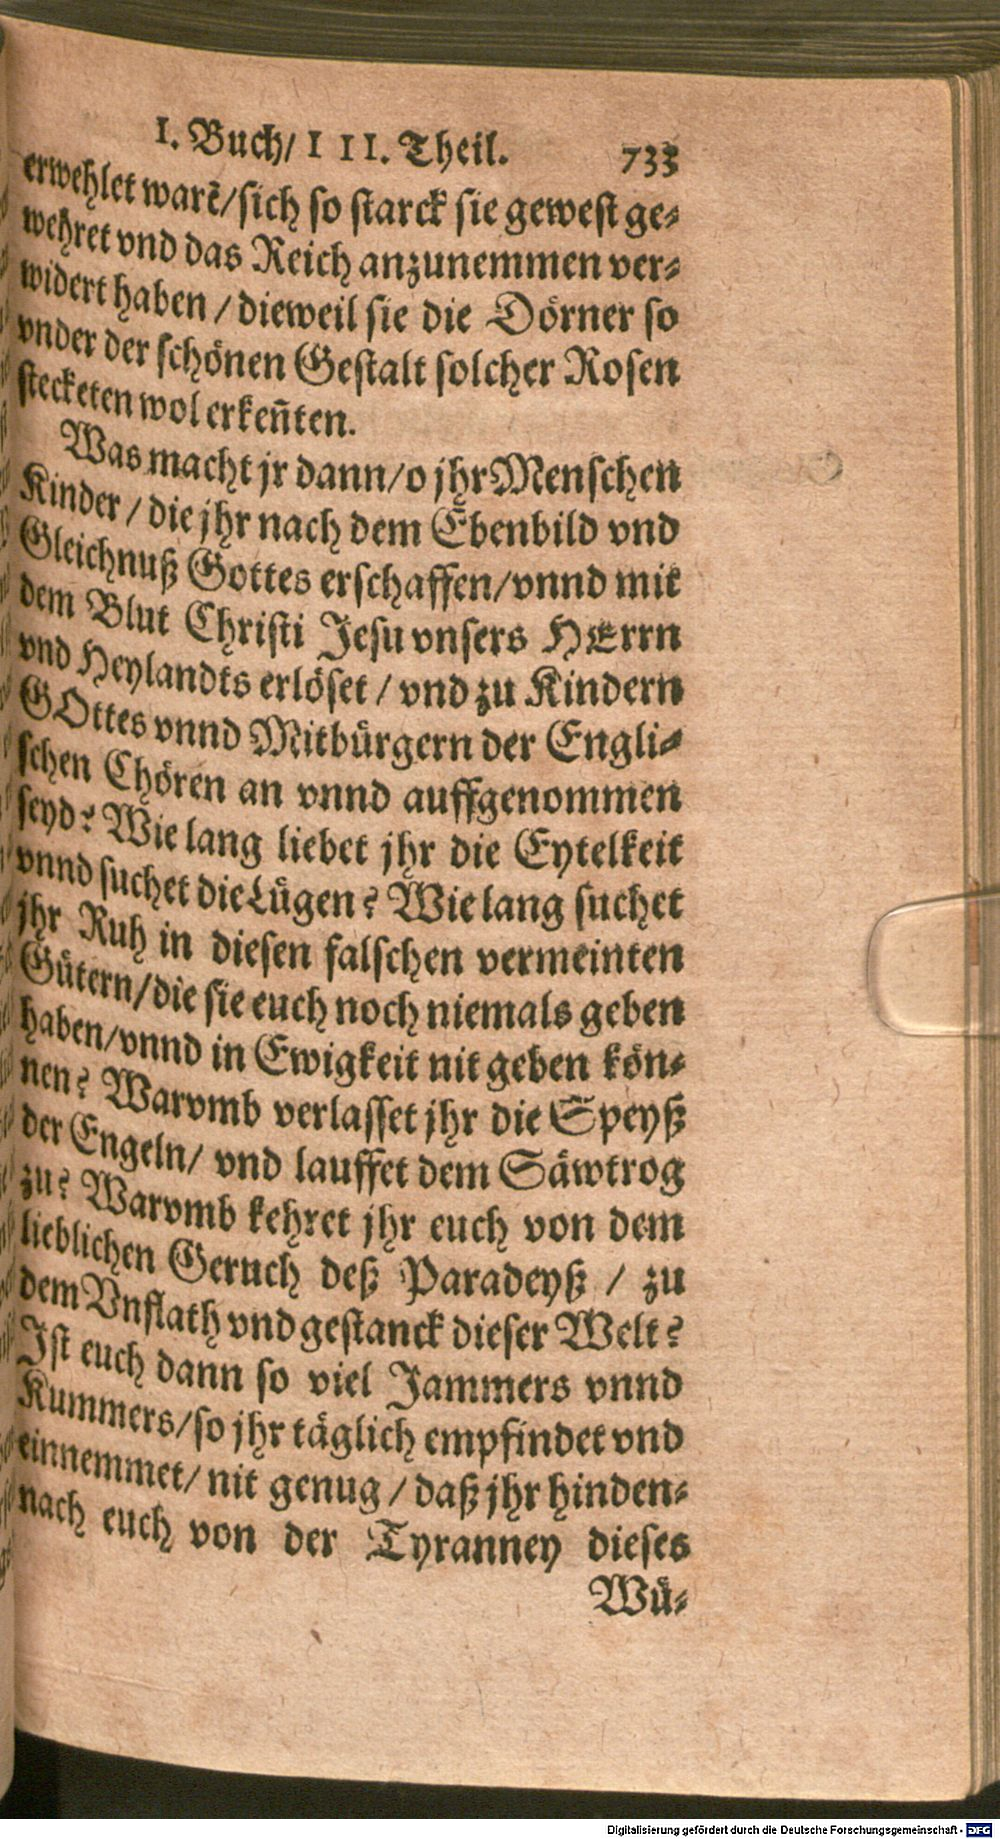 I. Buch/ III. Theil. 733
erwehlet warẽ/sich so starck sie gewest ge-
wehret vnd das Reich anzunemmen ver-
widert haben / dieweil sie die Dörner so
vnder der schönen Gestalt solcher Rosen
stecketen wol erkeñten.
Was macht jr dann/o jhr Menschen
Kinder / die jhr nach dem Ebenbild vnd
Gleichnuß Gottes erschaffen/vnnd mit
dem Blut Christi Jesu vnsers HErrn
vnd Heylandts erlöset / vnd zu Kindern
GOttes vnnd Mitbürgern der Engli-
schen Chören an vnnd auffgenommen
seyd? Wie lang liebet jhr die Eytelkeit
vnnd suchet die Lügen? Wie lang suchet
jhr Ruh in diesen falschen vermeinten
Gütern/die sie euch noch niemals geben
haben/vnnd in Ewigkeit nit geben kön-
nen? Warvmb verlasset jhr die Speyß
der Engeln/ vnd lauffet dem Säwtrog
zu? Warvmb kehret jhr euch von dem
lieblichen Geruch deß Paradeyß / zu
dem Vnflath vnd gestanck dieser Welt?
Ist euch dann so viel Jammers vnnd
Kummers/so jhr täglich empfindet vnd
einnemmet/ nit genug / daß jhr hinden-
nach euch von der Tyranney dieses
Wü-
Digitalisierung gefördert durch die Deutsche Forschungsgemeinschaft - DFG